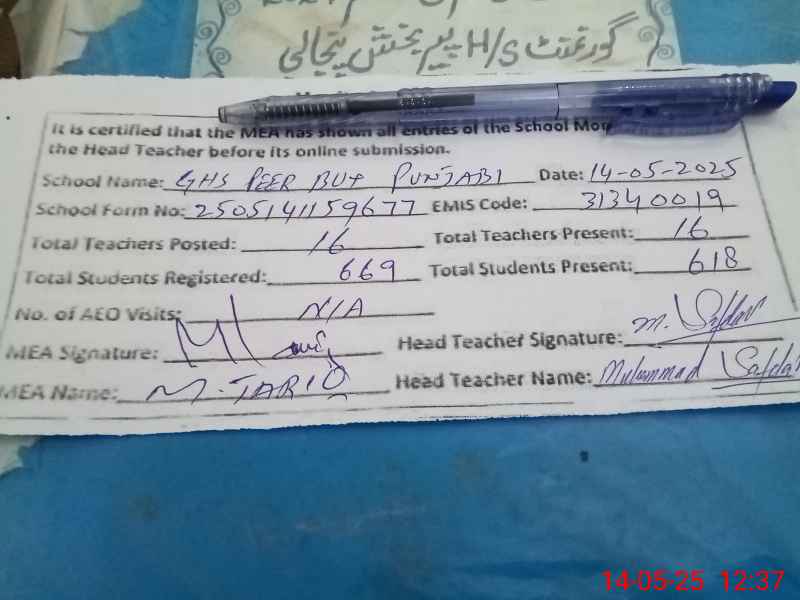 گورنمنٹ H/S پیر بخش پنجابی
It is certified that the MEA has shown all entries of the School
the Head Teacher before its online submission.
School Name: GHS PEER BUX PUNJABI Date: 14-05-2025
School Form No: 2505141159677 EMIS Code: 31340019
Total Teachers Posted: 16 Total Teachers Present: 16
Total Students Registered: 669 Total Students Present: 618
No. of AEO Visits: N/A
MEA Signature: Head Teacher Signature: M. Safdar
MEA Name: M. TARIQ Head Teacher Name: Muhammad Safdar
14-05-25 12:37